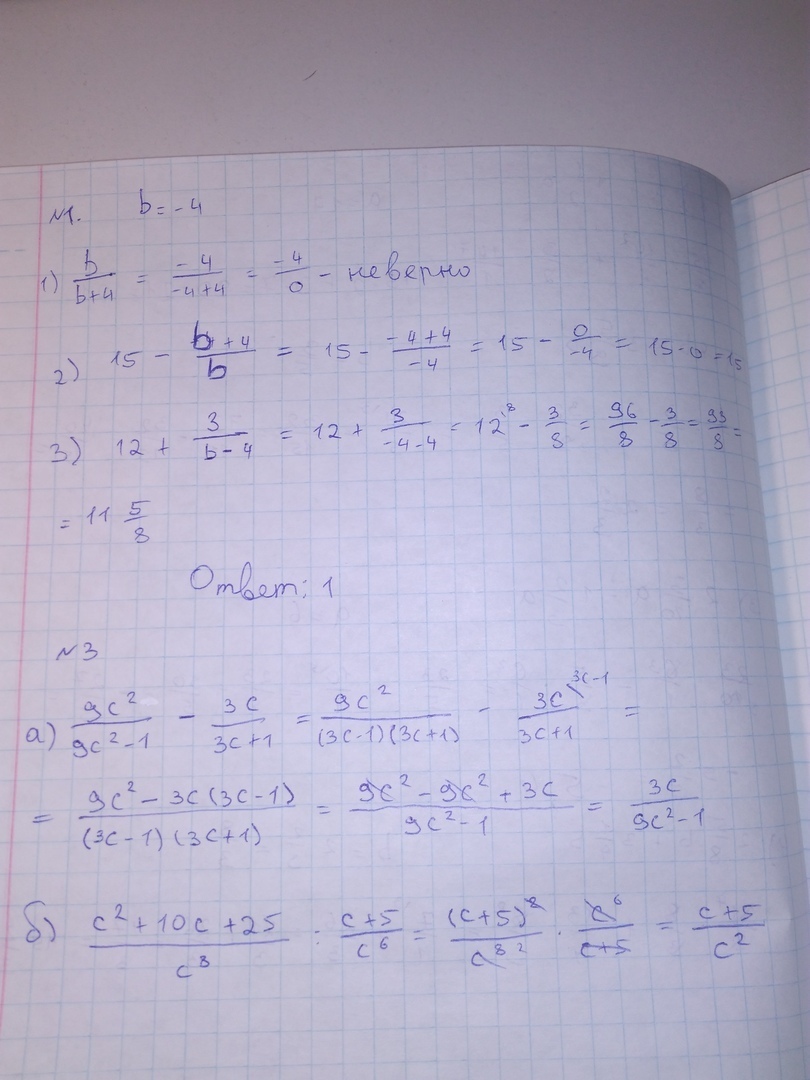 №1. b = -4
1) b/(b+4) = -4/(-4+4) = -4/0 - неверно
2) 15 - (b+4)/b = 15 - (-4+4)/(-4) = 15 - 0/(-4) = 15-0 = 15
3) 12 + 3/(b-4) = 12 + 3/(-4-4) = 12^8 - 3/8 = 96/8 - 3/8 = 93/8 =
= 11 5/8
Ответ: 1
№3
а) 9c²/(9c²-1) - 3c/(3c+1) = 9c²/((3c-1)(3c+1)) - 3c\^(3c-1)/(3c+1) =
= (9c² - 3c(3c-1))/((3c-1)(3c+1)) = (9c² - 9c² + 3c)/(9c²-1) = 3c/(9c²-1)
б) (c²+10c+25)/c⁸ : (c+5)/c⁶ = (c+5)²/c⁸ ² · c⁶/(c+5) = (c+5)/c²